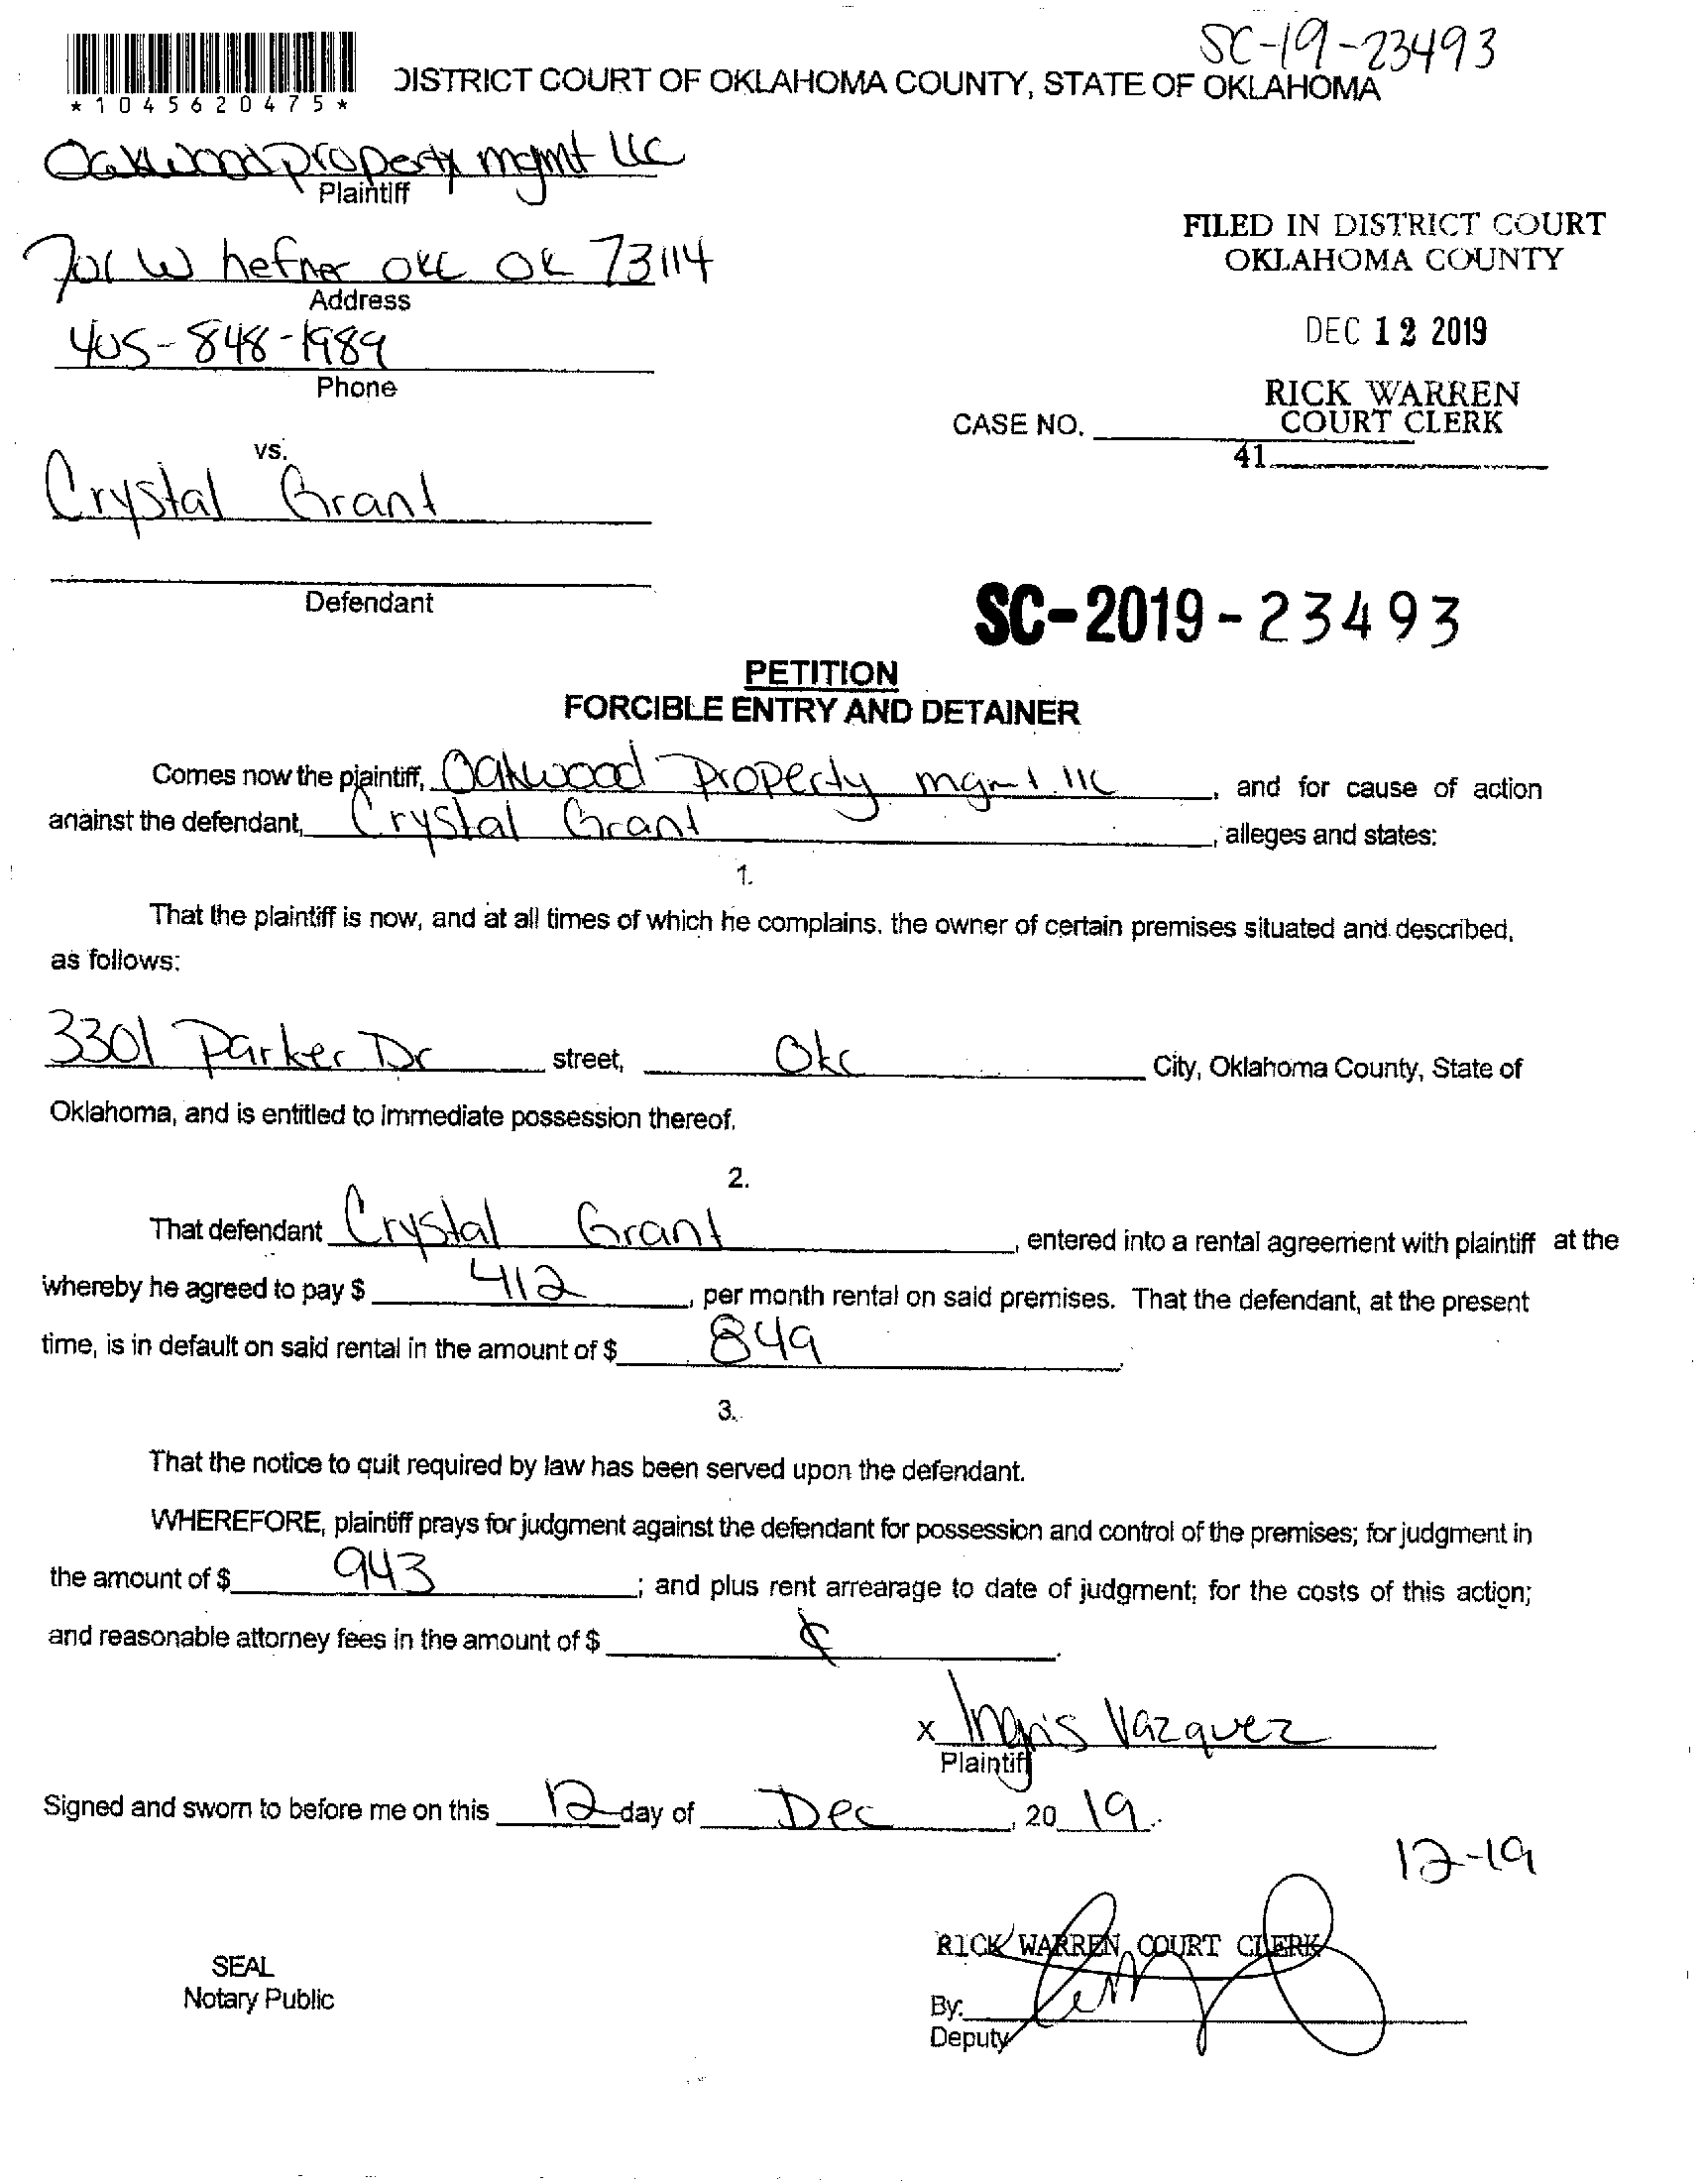 SC-19-23493
*1045620475*
DISTRICT COURT OF OKLAHOMA COUNTY, STATE OF OKLAHOMA
Oakwood property mgmt llc
Plaintiff
701 W hefner okc OK 73114
Address
405-848-1989
Phone
FILED IN DISTRICT COURT
OKLAHOMA COUNTY
DEC 12 2019
RICK WARREN
COURT CLERK
CASE NO.
41
vs.
Crystal Grant
Defendant
SC-2019-23493
PETITION
FORCIBLE ENTRY AND DETAINER
Comes now the plaintiff, Oakwood Property mgmt. llc, and for cause of action
against the defendant, Crystal Grant, alleges and states:
1.
That the plaintiff is now, and at all times of which he complains, the owner of certain premises situated and described,
as follows:
3301 Parker Dr street, Okc City, Oklahoma County, State of
Oklahoma, and is entitled to immediate possession thereof.
2.
That defendant Crystal Grant, entered into a rental agreement with plaintiff at the
whereby he agreed to pay $ 412, per month rental on said premises. That the defendant, at the present
time, is in default on said rental in the amount of $ 849.
3.
That the notice to quit required by law has been served upon the defendant.
WHEREFORE, plaintiff prays for judgment against the defendant for possession and control of the premises; for judgment in
the amount of $ 943; and plus rent arrearage to date of judgment; for the costs of this action;
and reasonable attorney fees in the amount of $
x Ingris Vazquez
Plaintiff
Signed and sworn to before me on this 12 day of Dec, 20 19.
12-19
RICK WARREN COURT CLERK
SEAL
Notary Public
By:
Deputy